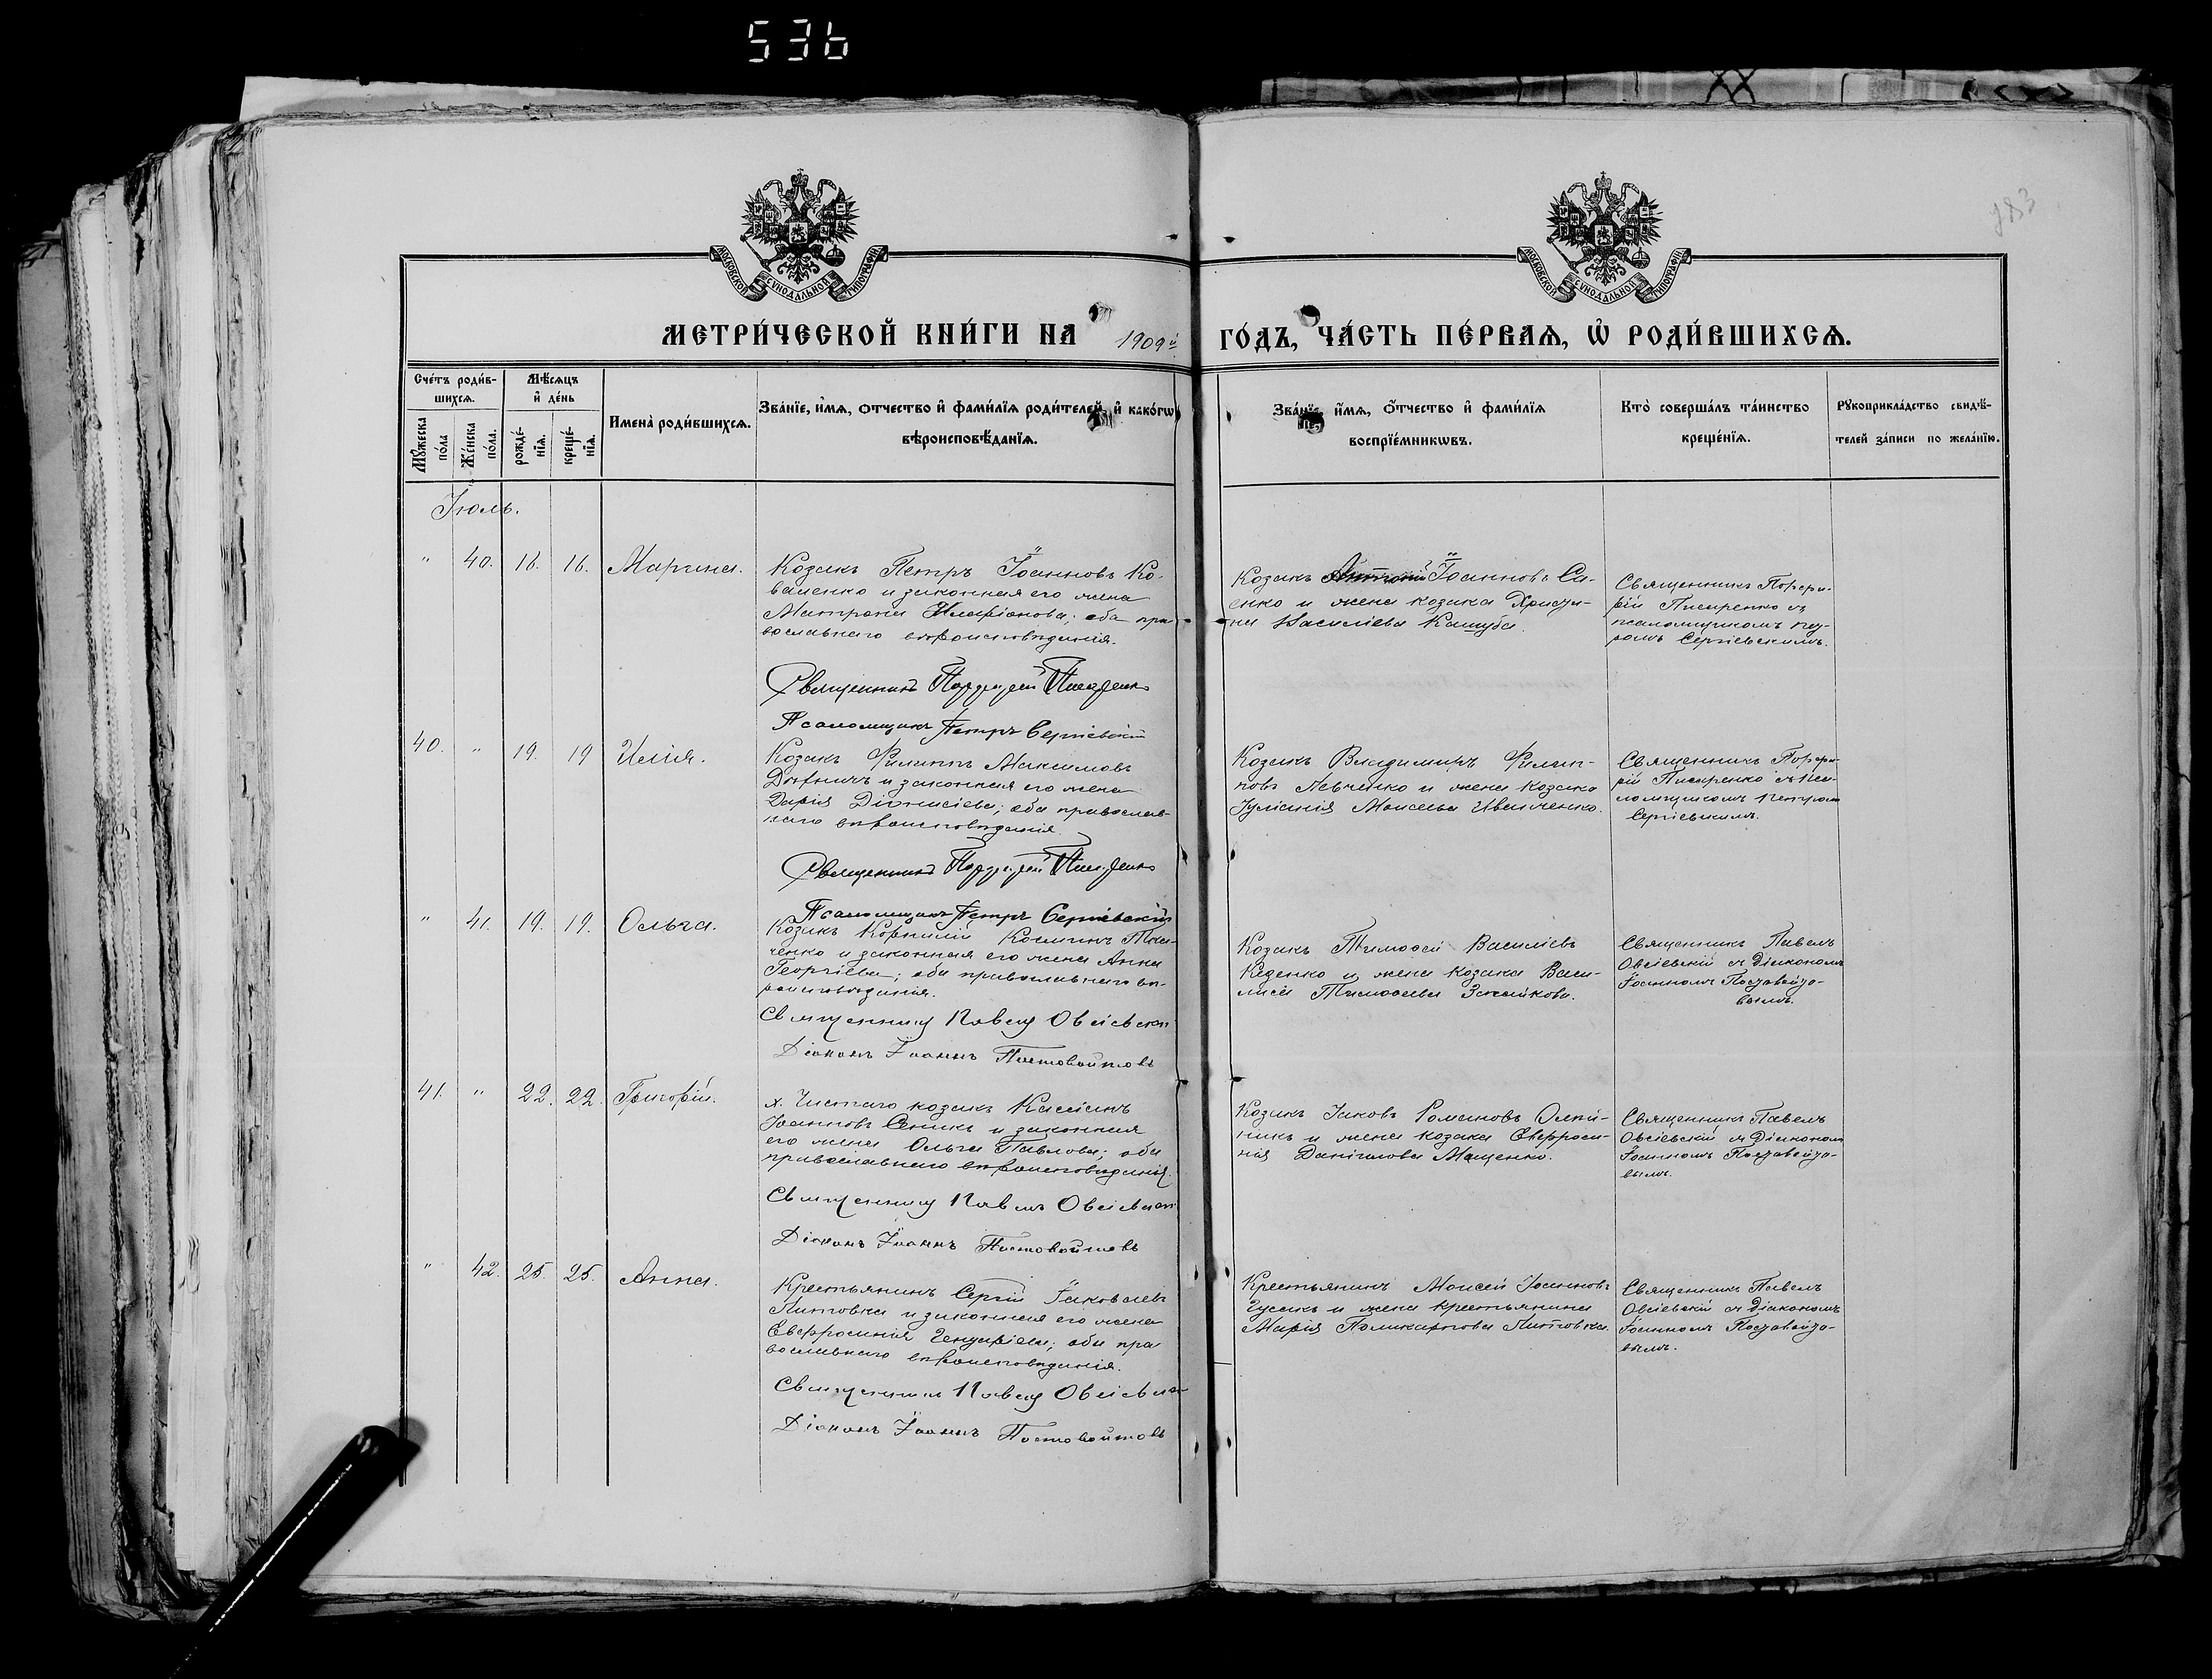 536
183
МОСКОВСКОЙ СѴНОДАЛЬНОЙ ТИПОГРАФІИ
МОСКОВСКОЙ СѴНОДАЛЬНОЙ ТИПОГРАФІИ
МЕТРИ́ЧЕСКОЙ КНИ́ГИ НА 1909й ГО́ДЪ, ЧА́СТЬ ПЕ́РВАѦ, Ѡ҆ РОДИ́ВШИХСѦ.
Сче́тъ роди́в-
шихсѧ.
Мѣ́сѧцъ
и҆ де́нь
Мꙋ́жеска
по́ла
Же́нска
по́ла.
рожде́-
нїѧ.
креще́-
нїѧ.
Имена̀ роди́вшихсѧ.
Зва́нїе, и҆́мѧ, ѻ҆́тчество и҆ фами́лїѧ роди́телей, и҆ како́гѡ
вѣроисповѣ́данїѧ.
Зва́нїе, и҆́мѧ, ѻ҆́тчество и҆ фами́лїѧ
воспрїе́мникѡвъ.
Кто̀ соверша́лъ та́инство
креще́нїѧ.
Рꙋкоприкла́дство свидѣ́-
телей за́писи по жела́нїю.
Іюль.
" 40. 16. 16. Марина.
Козакъ Петръ Іоанновъ Ко-
валенко и законная его жена
Матрона Иларіонова; оба пра-
вославнаго вѣроисповѣданія.
Священникъ Порфирій Писаренко
Псаломщикъ Петръ Сергіевскій
Козакъ Антоній Іоанновъ Са-
енко и жена козака Христи-
на Василіева Кашуба.
Священникъ Порфи-
рій Писаренко съ
псаломщикомъ Пет-
ромъ Сергіевскимъ.
40. " 19. 19 Илія.
Козакъ Филиппъ Максимовъ
и законная его жена
Дарія Діонисіева; оба православ-
наго вѣроисповѣданія.
Священникъ Порфирій Писаренко
Псаломщикъ Петръ Сергіевскій
Козакъ Владимиръ Филип-
повъ Левченко и жена козака
Іуліанія Моисеева Иванченко.
Священникъ Порфи-
рій Писаренко съ пса-
ломщикомъ Петромъ
Сергіевскимъ.
" 41. 19. 19. Ольга.
Козакъ Корнилій Косминъ Тка-
ченко и законная его жена Анна
Георгіева; оба православнаго вѣ-
роисповѣданія.
Священникъ Павелъ Овсіевскій
Діаконъ Іоаннъ Постовойтовъ
Козакъ Тимоѳей Василіевъ
Кеденко и жена козака Васи-
лиса Тимоѳеева
Священникъ Павелъ
Овсіевскій съ Діакономъ
Іоанномъ Постовойто-
вымъ.
41. " 22. 22. Григорій.
х. Чистаго козакъ Кассіанъ
Іоанновъ Сеникъ и законная
его жена Ольга Павлова; оба
православнаго вѣроисповѣданія.
Священникъ Павелъ Овсіевскій
Діаконъ Іоаннъ Постовойтовъ
Козакъ Іаковъ Романовъ Олей-
никъ и жена козака Евфроси-
нія Даніилова Мащенко.
Священникъ Павелъ
Овсіевскій съ Діакономъ
Іоанномъ Постовойто-
вымъ.
" 42. 25. 25. Анна.
Крестьянинъ Сергій Іаковлевъ
Литовка и законная его жена
Евфросинія оба пра-
вославнаго вѣроисповѣданія.
Священникъ Павелъ Овсіевскій
Діаконъ Іоаннъ Постовойтовъ
Крестьянинъ Моисей Іоанновъ
Гусакъ и жена крестьянина
Марія Поликарпова Литовка.
Священникъ Павелъ
Овсіевскій съ Діакономъ
Іоанномъ Постовойто-
вымъ.